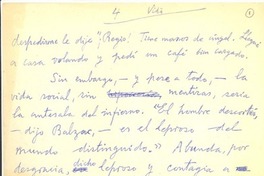 4 Vidi 1
despedirme le dije "¡Regio! Tiene manos de ángel. Llegué
a casa volando y pedí un café bien cargado.
Sin embargo, — y pese a todo, — la
vida social, sin mentiras, sería
la antesala del infierno. "El hombre descortés,
— dijo Balzac, — es el leproso del
mundo distinguido." Abunda, por
desgracia, dicho leproso y contagia a